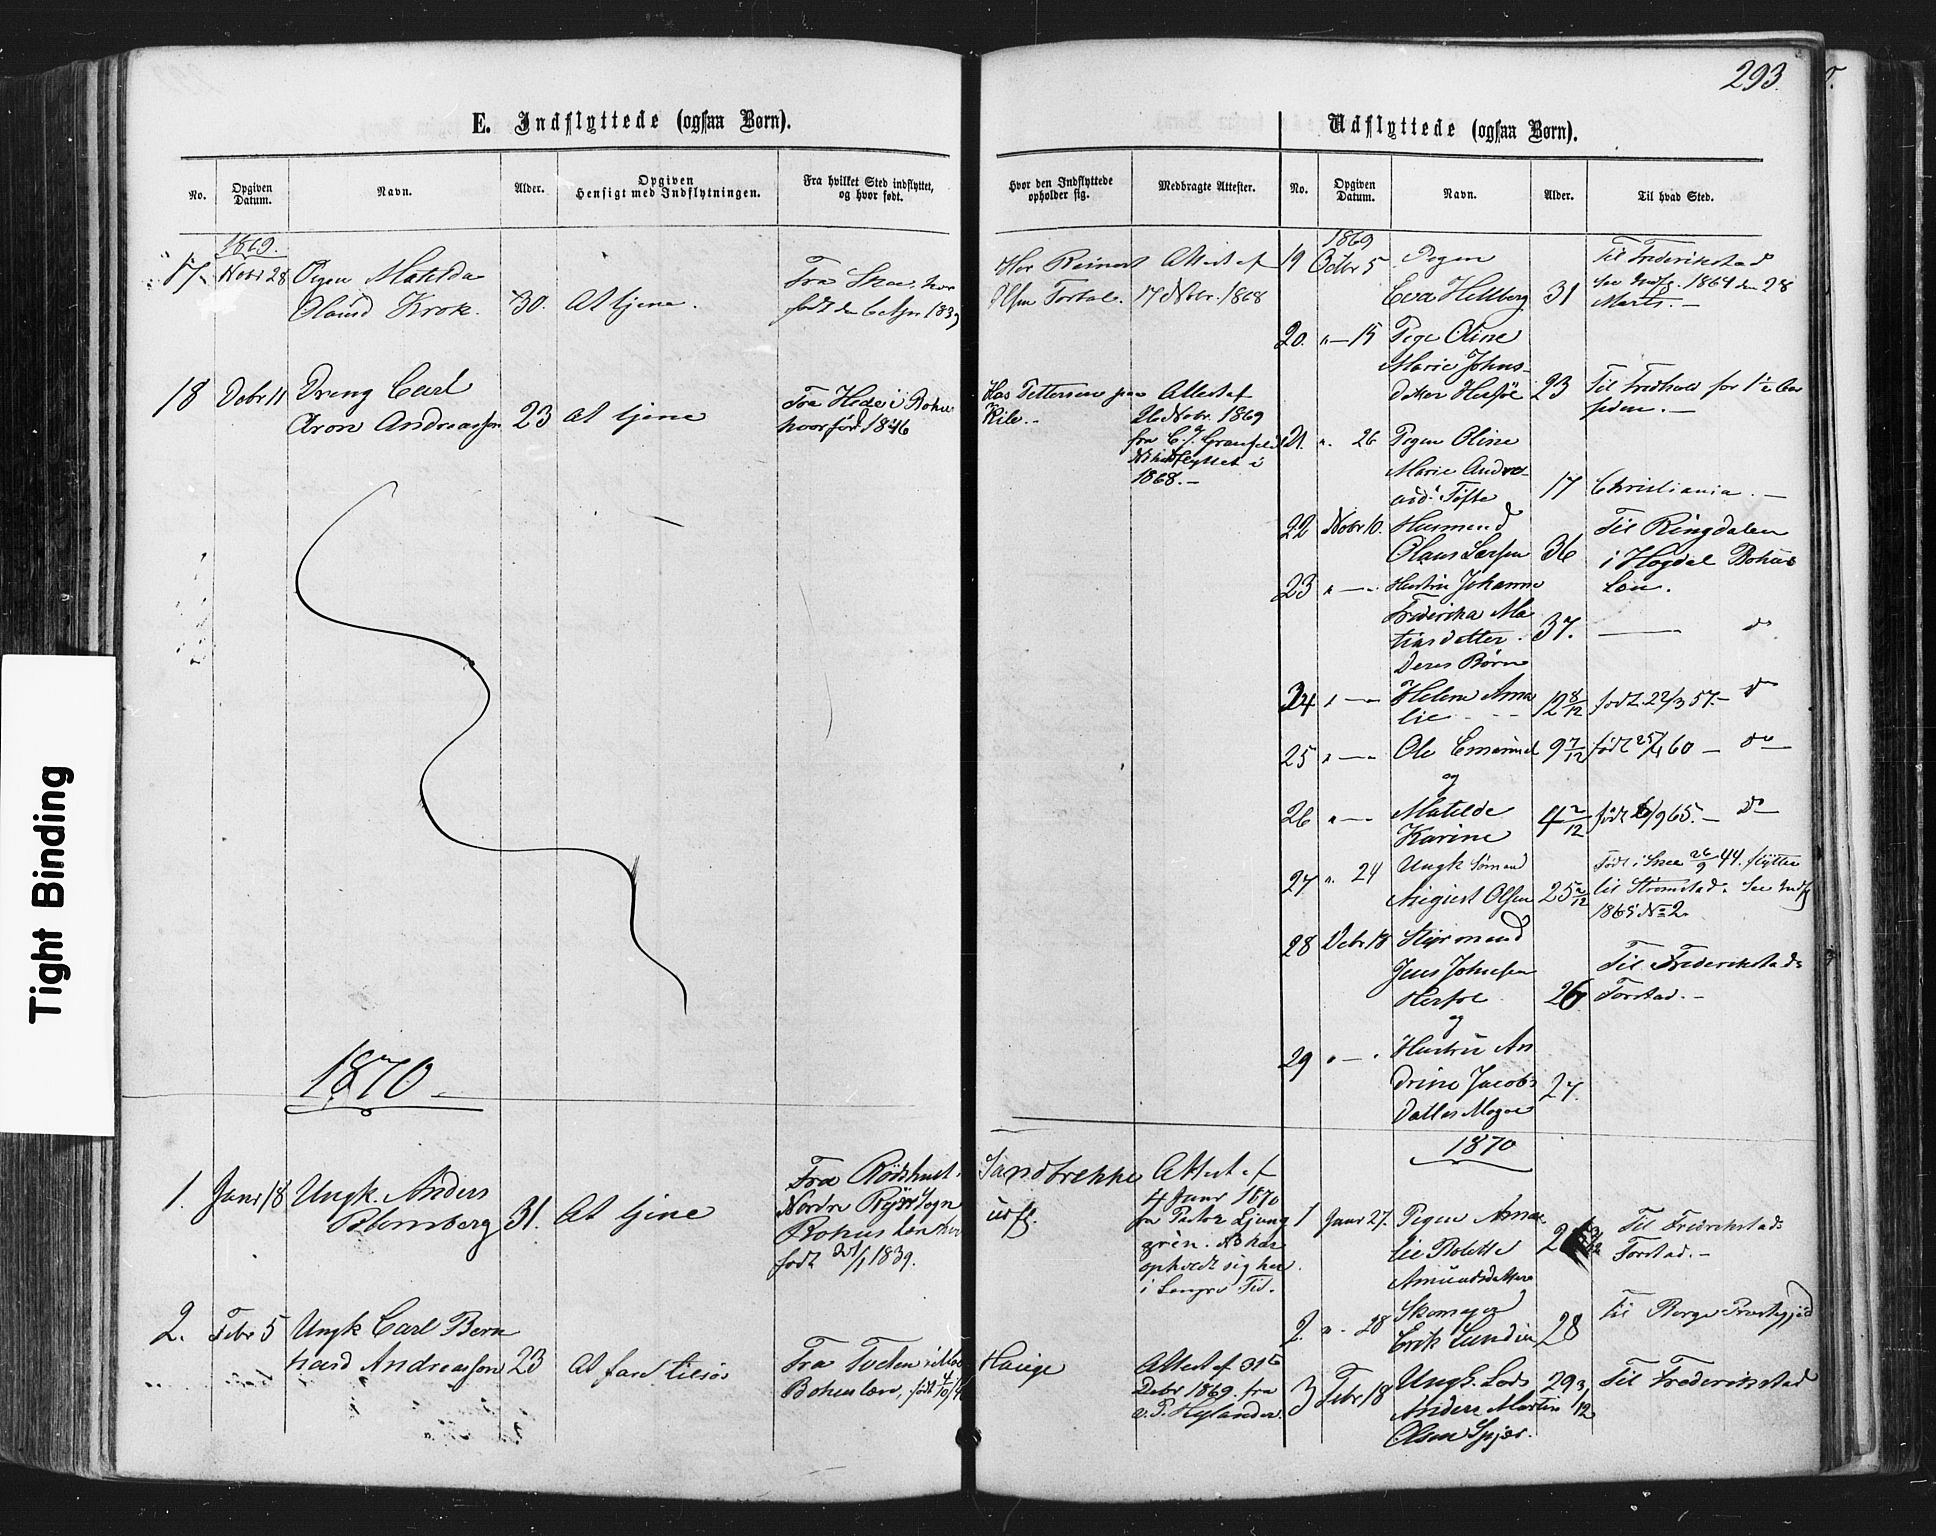 293
E. Indflyttede (ogsaa Børn).
No.
Opgiven Datum.
Navn.
Alder.
Opgiven
Hensigt med Indflytningen.
Fra hvilket Sted indflyttet,
og hvor født.
Hvor den Indflyttede
opholder sig.
Medbragte Attester.
1869.
17 Nobr 28 Pigen Matilda
Olausd Krok. 30. At tjene.
Fra Skee, hvor
født den 6 Apr 1839
Hos Reinert
Olsen Torbal.
Attest af
17 Nobr. 1868
18 Debr 11 Dreng Carl
Aron Andreasson 23 At tjene
Fra Hede i Bohus
hvor fød. 1846
Hos Pettersen paa
Kile.
Attest af
26 Nobr. 1869
fra C. J. Granfeldt
Nb indflyttet i
1868.
1870
1. Janr 18 Ungk. Anders
Blomberg 31. At tjene
Fra Rødshult i
Nordre Ryrs Sogn
Bohus Län hvor
født 21/1 1839.
Sandbrekke
udfl.
Attest af
4 Janr 1870
fra Pastor Ljung
grén. Nb har
opholdt sig her
i længre Tid.
2. Febr 5 Ungk Carl Bern
hard Andreasson 23 At fare tilsøs
Fra Tveten i
Bohuslæn, født 4/10
Hauge
Attest af 31te
Debr 1869. fra
v. P. Hylander.
Udflyttede (ogsaa Børn).
No.
Opgiven
Datum.
Navn.
Alder.
Til hvad Sted.
1869
19 Octbr 5 Pigen
Eva Hellberg 31
Til Frederikstad
See Indfl. 1864 den 28
Marts.
20. " 15 Pige Oline
Marie Johns-
datter Herføl 23
Til Fredhald for 1 1/2 Aar
siden.
21. " 26 Pigen Oline
Marie Andre-
asd. Tofte 17 Christiania.
22 Nobr 10. Husmand
Olaus Larsen 36
Til Ringdalen
i Hogdal Bohus
Län.
23 " Hustru Johanne
Frederika Ma
tiasdatter. 37. do
Deres Børn
24 " Helene Ama
lie 12 8/12 født 22/3 57. do
25 " Ole Emanuel 9 7/12 født 25/4 60 do
og
26 " Matilde
Karine 4 2/12 født 6/9 65. do
27 " 24 Ungk Sømand
August Olsen 25 2/12
Født i Skee 26/9 44. flytter
til Strømstad. See Indfl
1865 No 2.
28 Debr 18 Styrmand
Jens Johnsen
Herføl 26
Til Frederikstads
Forstad.
og
29 " Hustru An
drine Jacobs
datter Magøe 27.
1870
1 Janr 27. Pigen Ama
lie Bolette
Amundsdatter
Til Fredrikstads
Forstad.
2 " 28 Skomager
Erik Lundin 28 Til Borge Præstegjæld
3 Febr 18 Ungk. Lods 29 3/12 Til Frederikstad
Anders Martin
Olsen Spjær.
Tight Binding